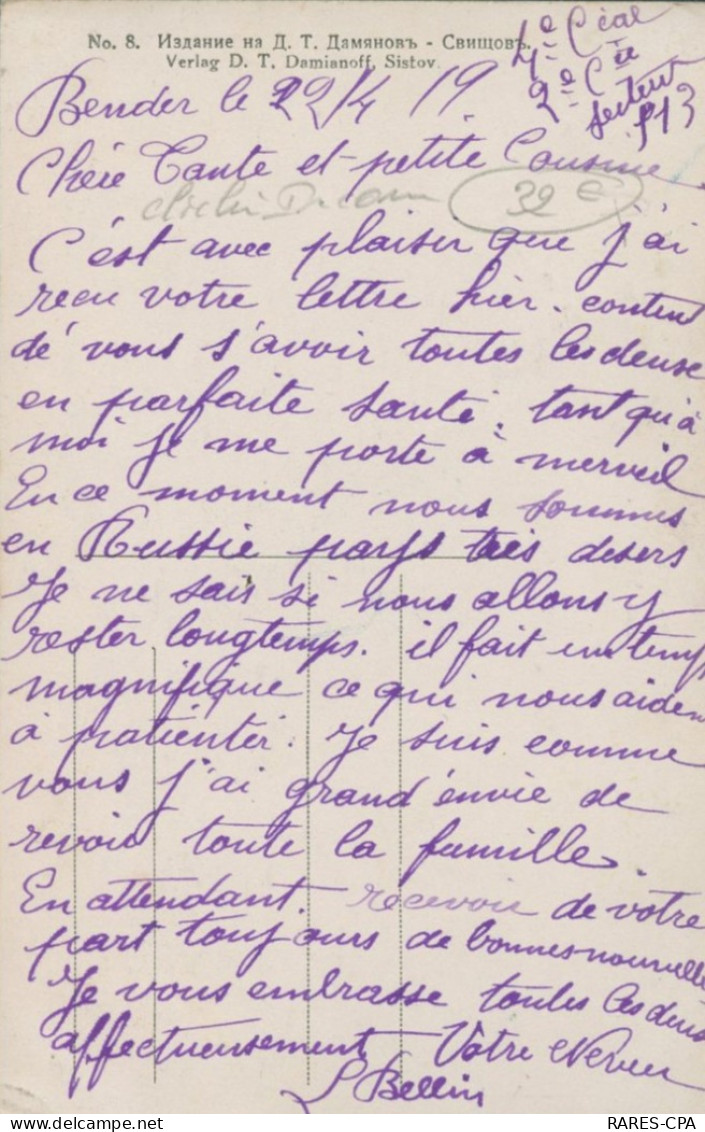 No. 8. Издание на Д. Т. Дамяновъ - Свищовъ.
Verlag D. T. Damianoff, Sistov.
4e Céal
2e Cie
secteur
513
Bender le 22/4 19
Chère Tante et petite Cousine
32 €
C'est avec plaisir que j'ai
recu votre lettre hier. content
dé vous s'avoir toutes les deuse
en parfaite santé. tant qu'à
moi je me porte à merveil
En ce moment nous sommes
en Russie pays très desers
Je ne sais si nous allons y
rester longtemps. il fait un temps
magnifique ce qui nous aiden
à patienter. Je suis comme
vous j'ai grand énvie de
revoir toute la famille.
En attendant recevoir de votre
part toujours de bonnes nouvelle
Je vous embrasse toutes les deus
affectueusement Votre Neveu
L Bellin
RARES-CPA